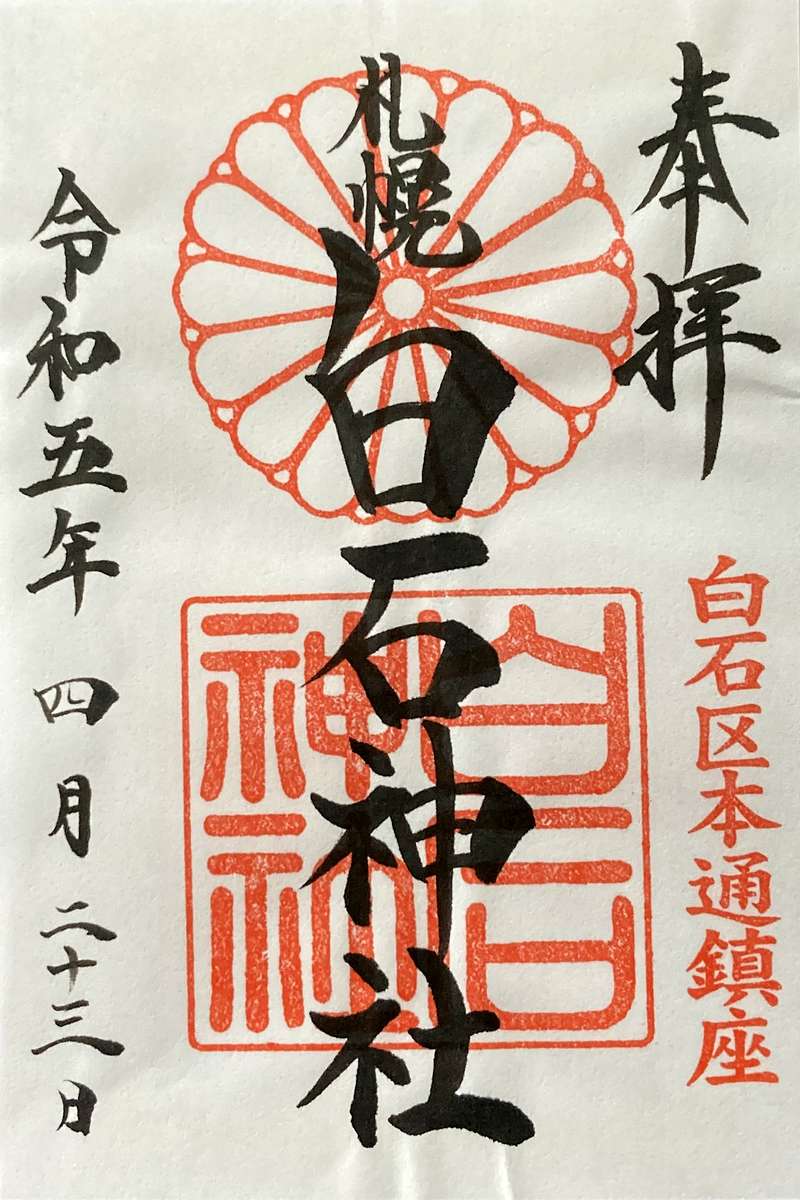 奉拝
白石区本通鎮座
札幌
白石神社
白石
神社
令和五年四月二十三日